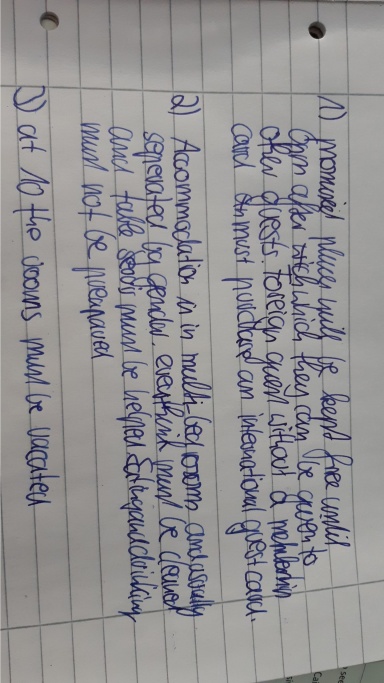 1) promised places will be kept free until
6pm after which they can be given to
other guests. foreign guest without a membership
card must purchase an international guest card.
2) Accommodation is in multi-bed rooms and usually
seperated by gender. everything must be cleaned
and table must be helped Eating and drinking
must not be prepared
3) at 10 the rooms must be vacated